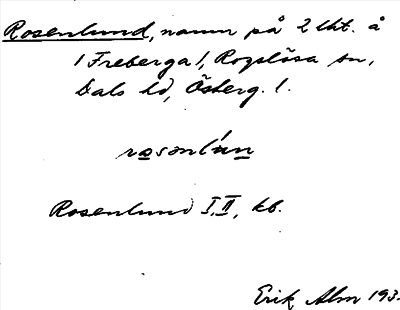 Rosenlund, namn på 2 lht. å
/Freberga/, Rogslösa sn,
Dals hd, Österg. l.
Rosenlund I, II, kb.
Erik Alm 193